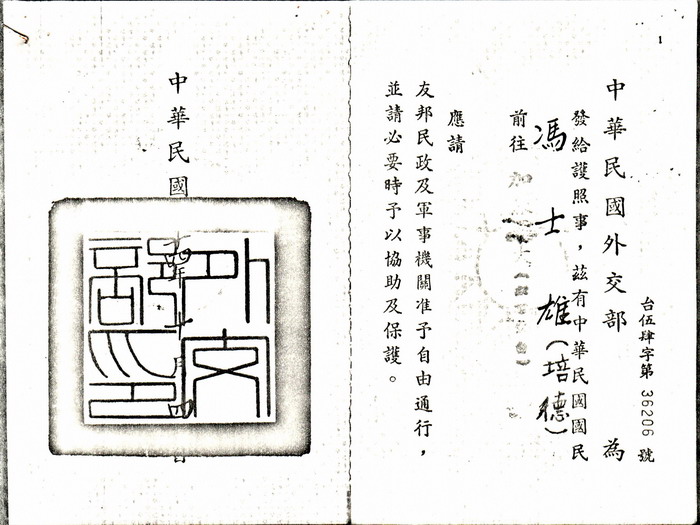 1
台伍肆字第 36206 號
中華民國外交部 為
發給護照事，茲有中華民國國民
馮士雄（培德）
前往 加
應請
友邦民政及軍事機關准予自由通行，
並請必要時予以協助及保護。
中華民國 年十月四日
外交部印